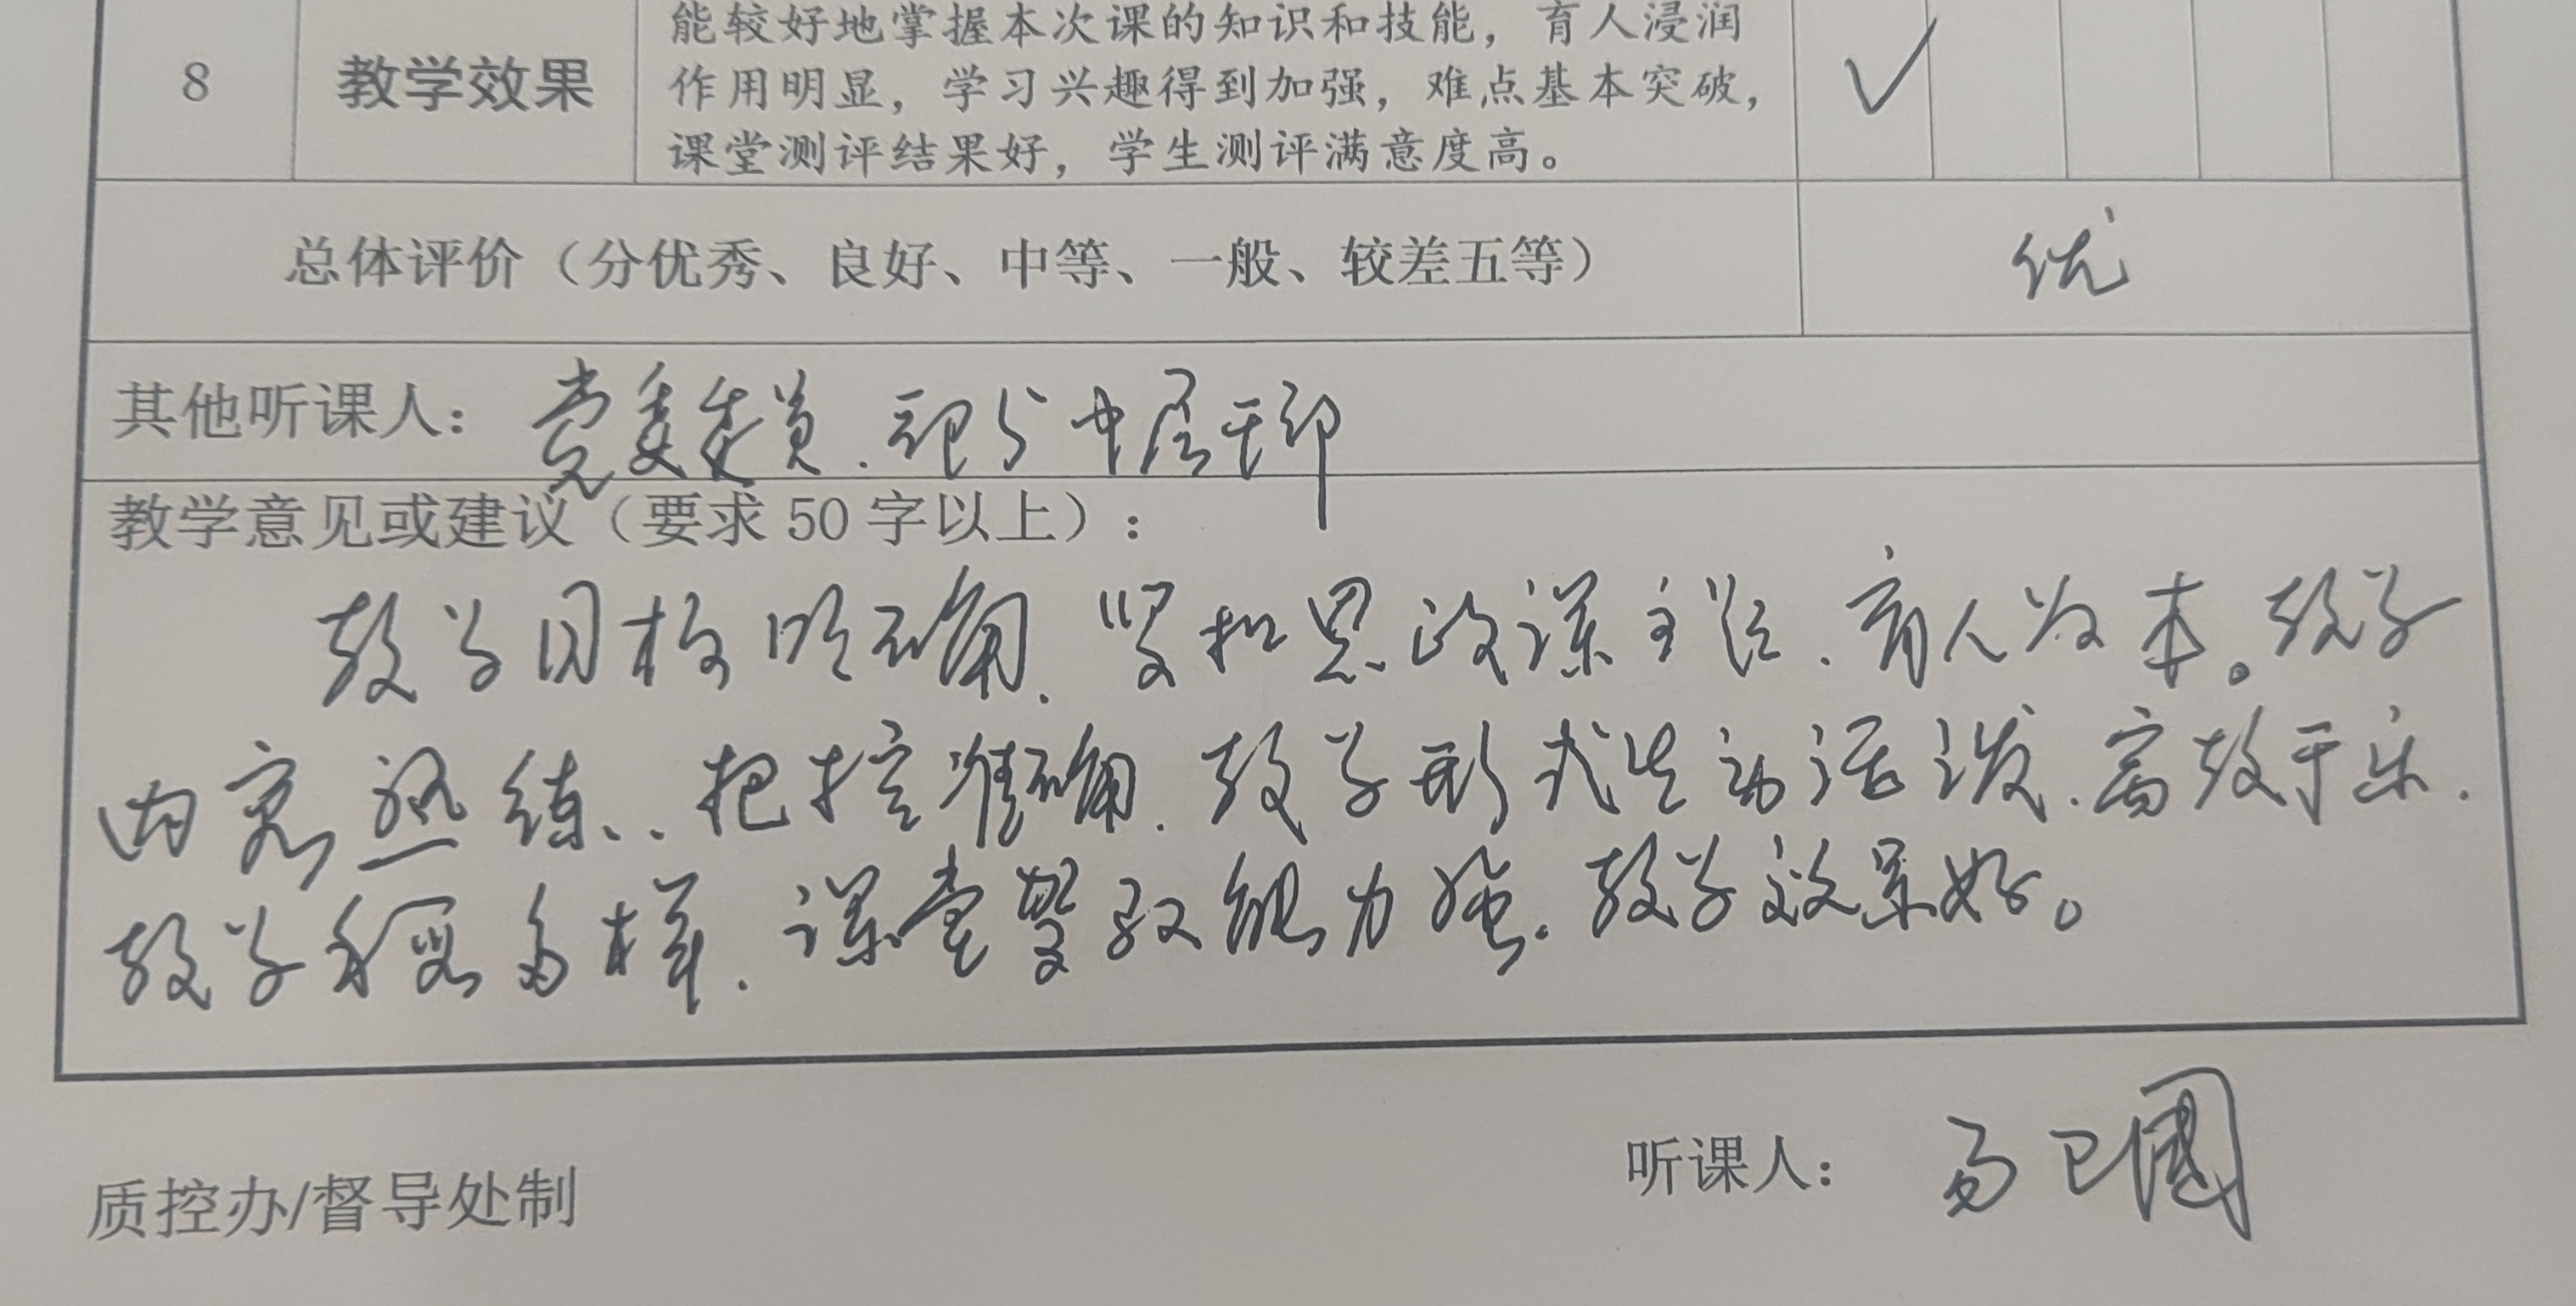 能较好地掌握本次课的知识和技能，育人浸润
8 教学效果 作用明显，学习兴趣得到加强，难点基本突破， ✓
课堂测评结果好，学生测评满意度高。
总体评价（分优秀、良好、中等、一般、较差五等） 优
其他听课人：党委委员、部分中层干部
教学意见或建议（要求 50 字以上）：
教学目标明确、紧扣思政课主旨、育人为本。教学
内容熟练、把控准确、教学形式生动活泼、寓教于乐、
教学多样、课堂驾驭能力强、教学效果好。
听课人：易卫國
质控办/督导处制